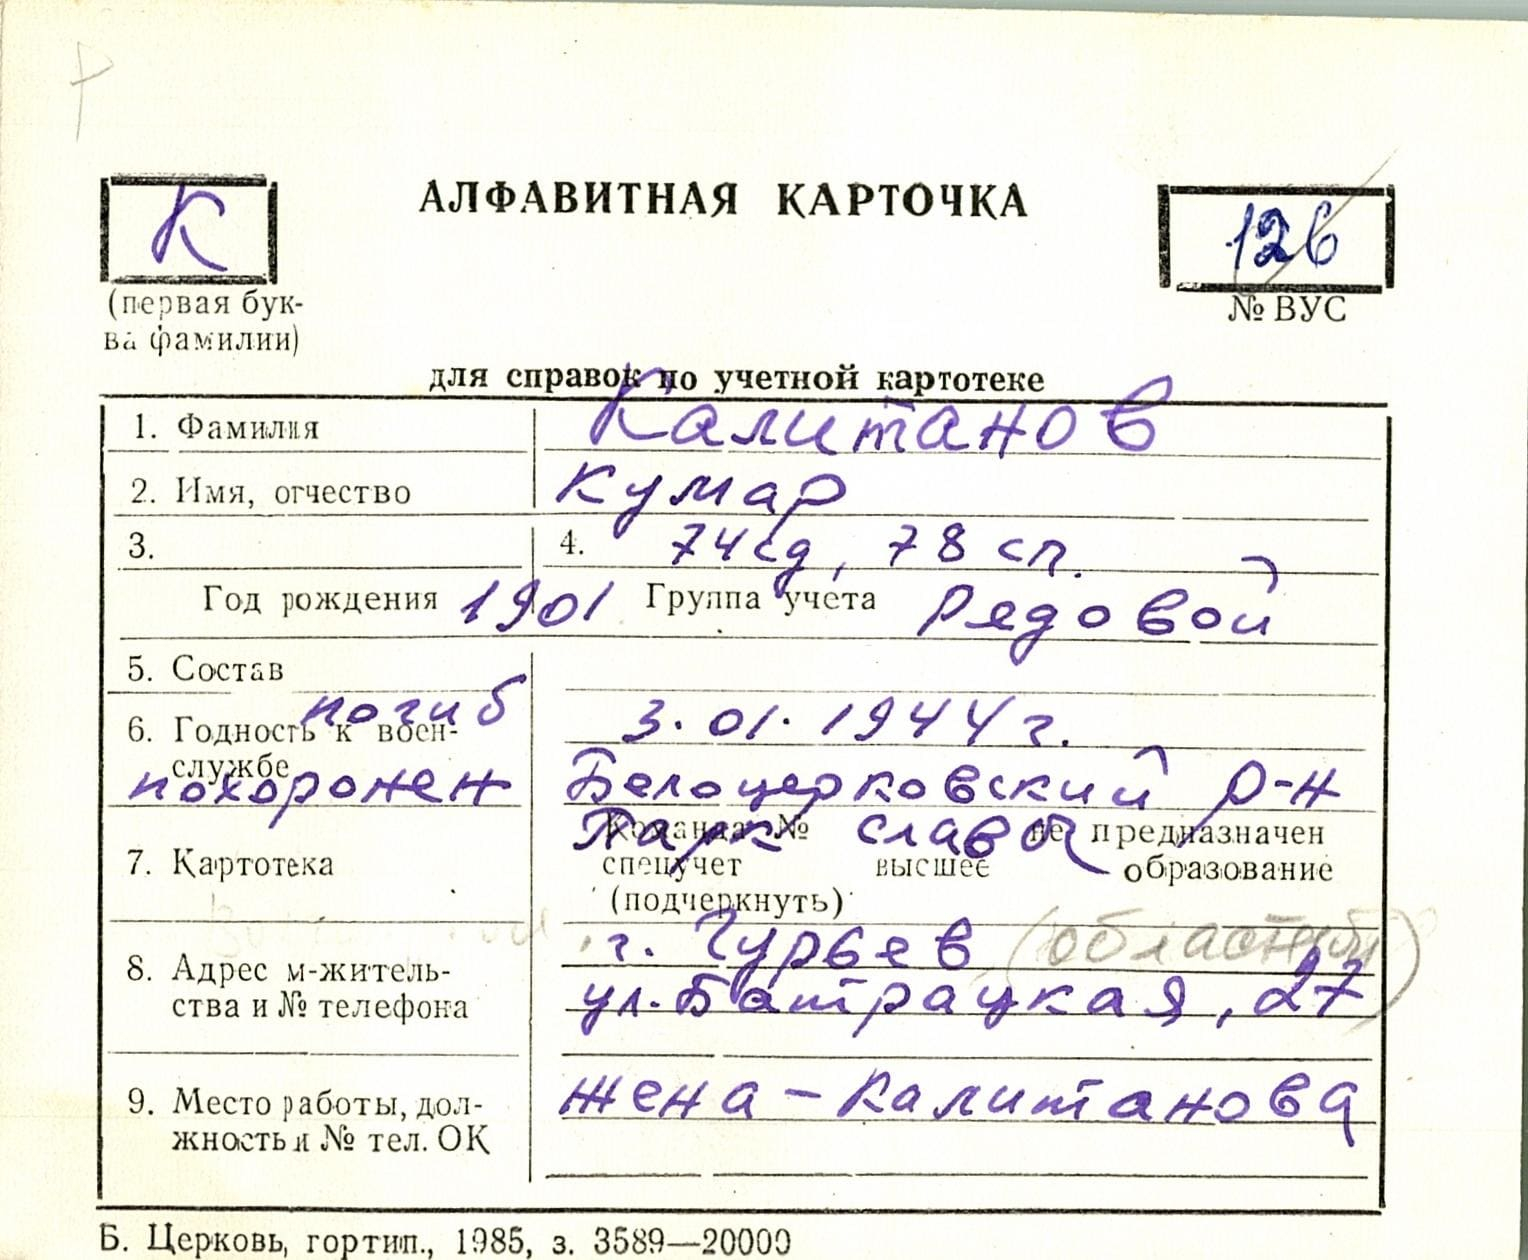 К
АЛФАВИТНАЯ КАРТОЧКА
126
(первая бук-
ва фамилии)
№ ВУС
для справок по учетной картотеке
1. Фамилия Калитанов
2. Имя, отчество Кумар
3. 4. 74 сд, 78 сп.
Год рождения 1901 Группа учета Рядовой
5. Состав
погиб 3.01.1944 г.
6. Годность к воен-
службе
похоронен Белоцерковский р-н
Парк славы
Команда № не предназначен
7. Картотека спецучет высшее образование
(подчеркнуть)
г. Гурьев (область)
8. Адрес м-житель-
ства и № телефона ул. Батрацкая, 27
9. Место работы, дол- жена - Калитанова
жность и № тел. ОК
Б. Церковь, гортип., 1985, з. 3589—20000